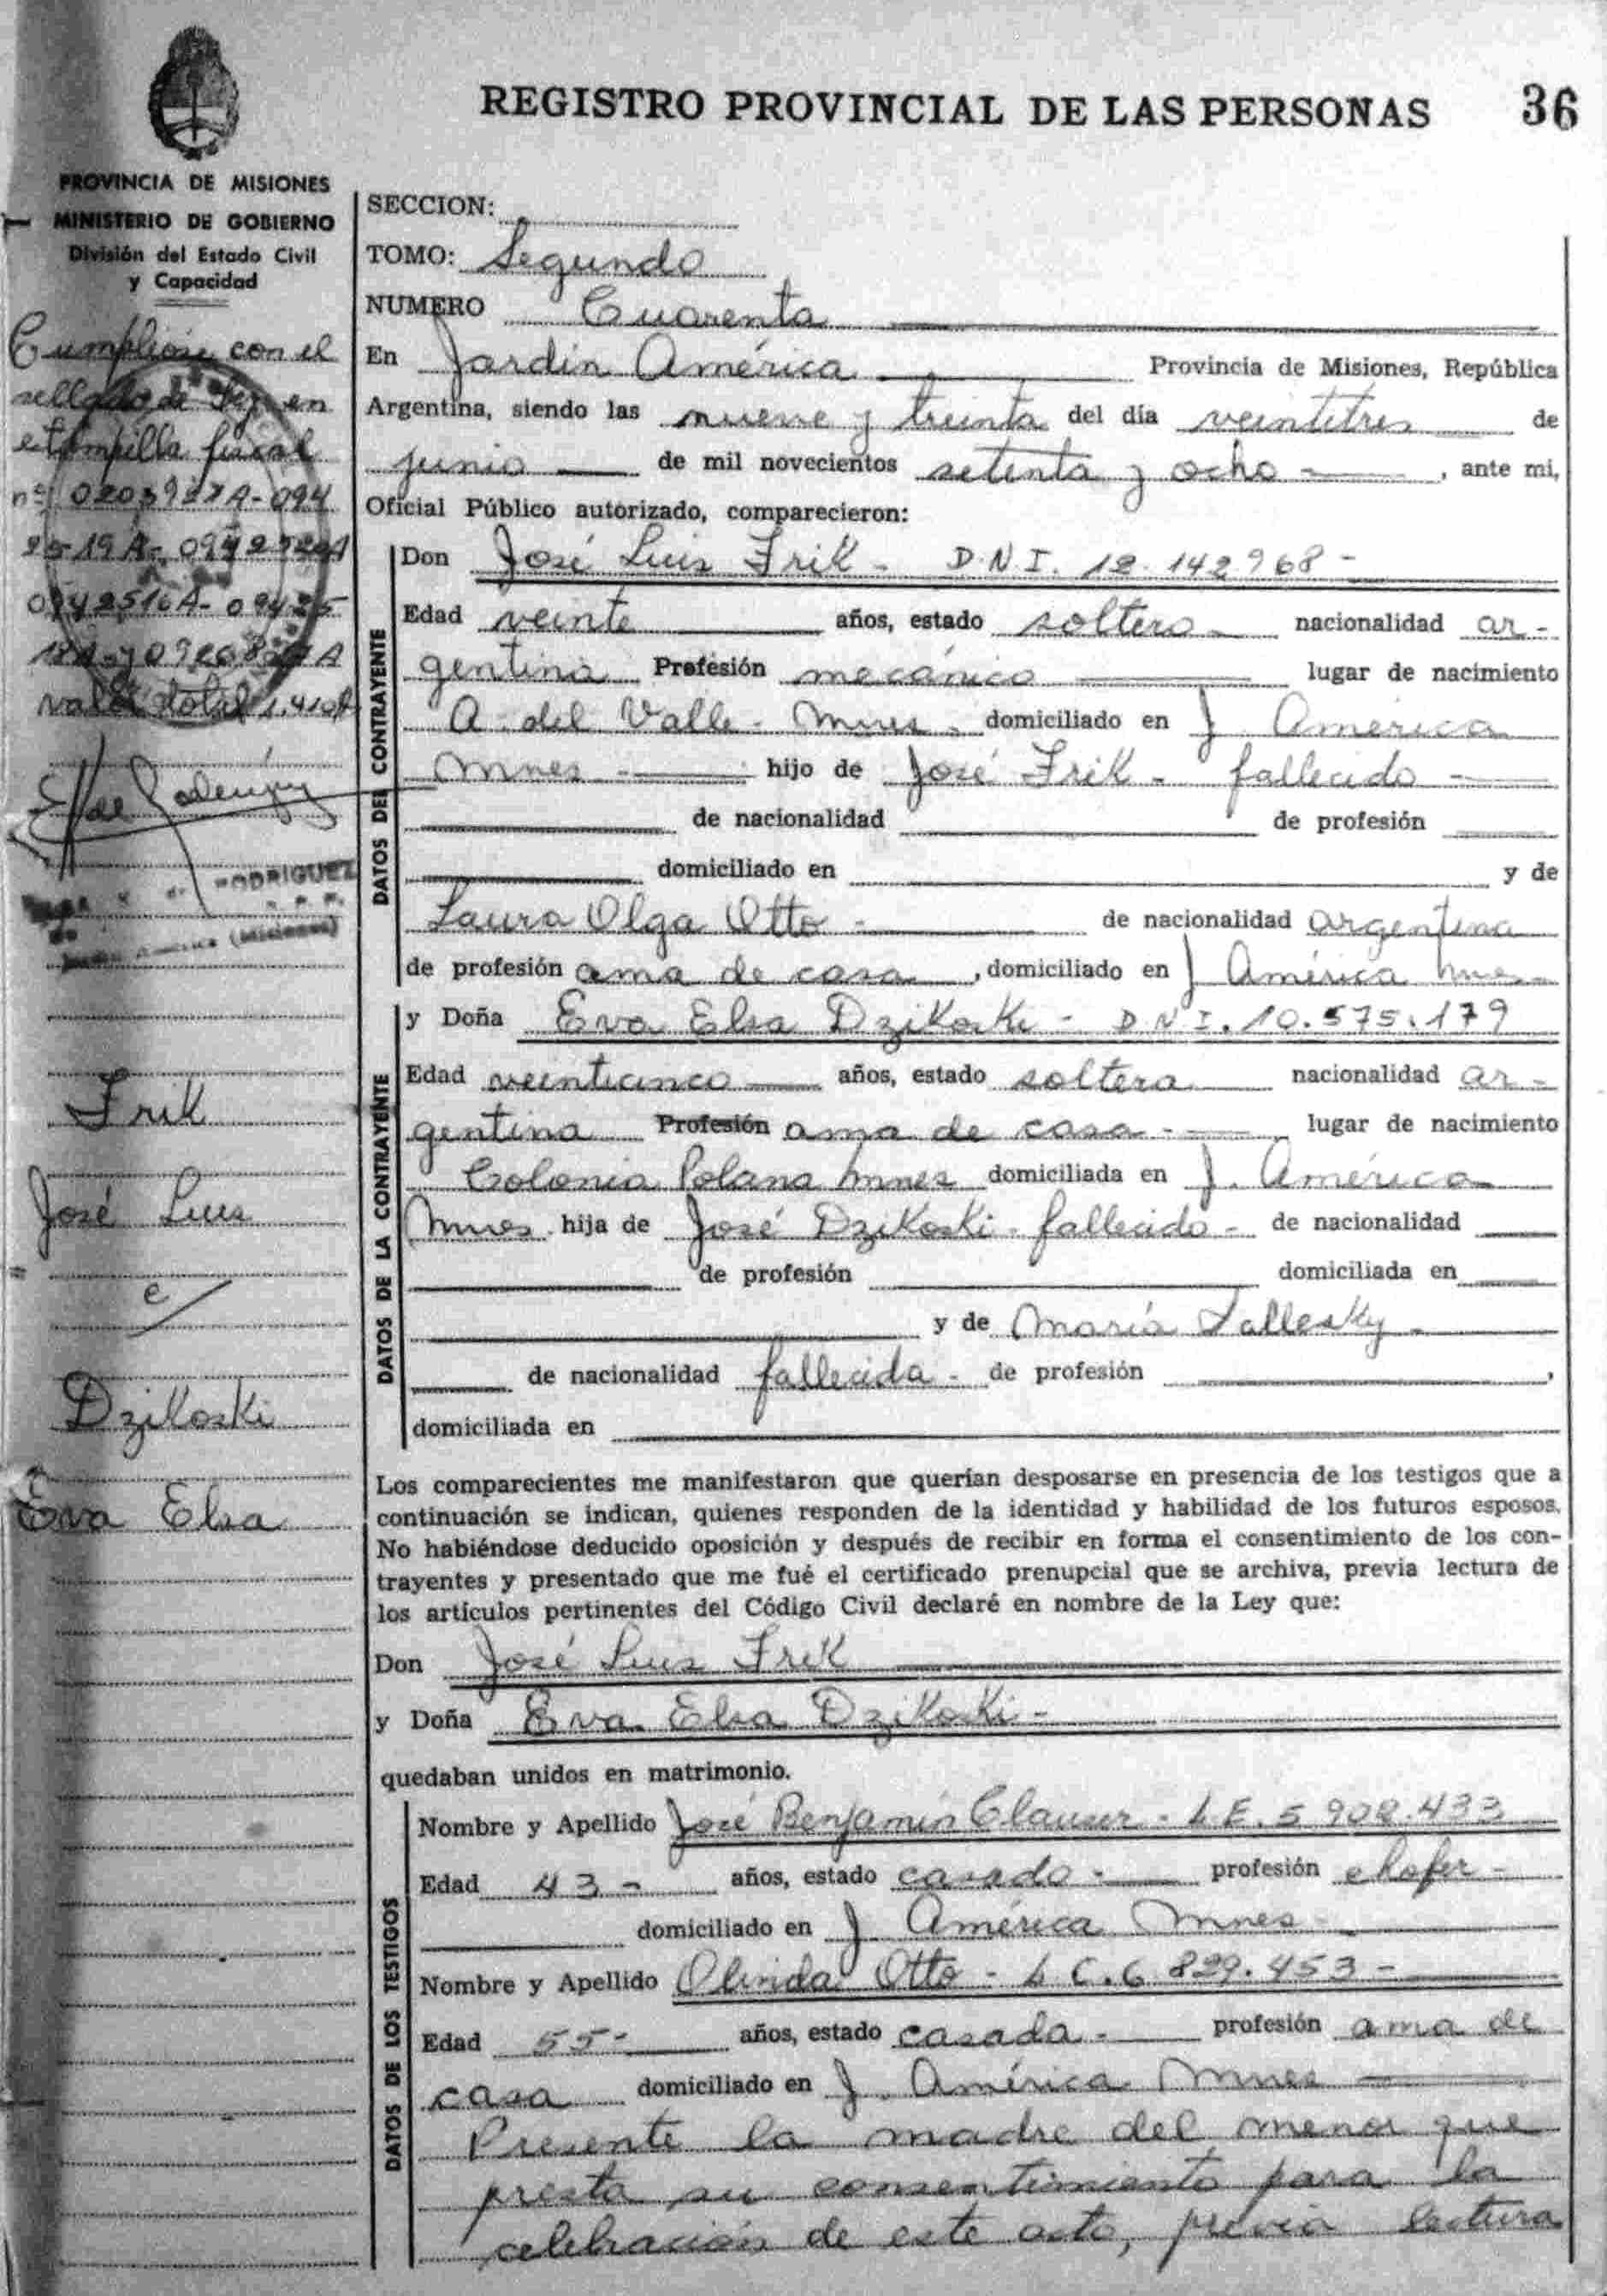 REGISTRO PROVINCIAL DE LAS PERSONAS 36
PROVINCIA DE MISIONES
MINISTERIO DE GOBIERNO
División del Estado Civil
y Capacidad
Cumplióse con el
sellado de ley en
estampilla fiscal
valor total
RODRIGUEZ
(Misiones)
Frik
José Luis
c/
Dzikoski
Eva Elsa
SECCION:
TOMO: Segundo
NUMERO Cuarenta
En Jardín América Provincia de Misiones, República
Argentina, siendo las nueve y treinta del día veintitres de
junio de mil novecientos setenta y ocho, ante mi,
Oficial Público autorizado, comparecieron:
DATOS DEL CONTRAYENTE
Don José Luis Frik - D.N.I. 12.142.968 -
Edad veinte años, estado soltero - nacionalidad ar-
gentina Profesión mecánico lugar de nacimiento
A. del Valle - Mnes - domiciliado en J. América
Mnes - hijo de José Frik - fallecido -
de nacionalidad de profesión
domiciliado en y de
Laura Olga Otto - de nacionalidad argentina
de profesión ama de casa, domiciliado en J América Mnes
DATOS DE LA CONTRAYENTE
y Doña Eva Elsa Dzikoski - D.N.I. 10.575.179
Edad veinticinco años, estado soltera nacionalidad ar-
gentina Profesión ama de casa - lugar de nacimiento
Colonia Polana Mnes domiciliada en J. América
Mnes hija de José Dzikoski - fallecido - de nacionalidad
de profesión domiciliada en
y de María -
de nacionalidad fallecida - de profesión ,
domiciliada en
Los comparecientes me manifestaron que querían desposarse en presencia de los testigos que a
continuación se indican, quienes responden de la identidad y habilidad de los futuros esposos.
No habiéndose deducido oposición y después de recibir en forma el consentimiento de los con-
trayentes y presentado que me fué el certificado prenupcial que se archiva, previa lectura de
los artículos pertinentes del Código Civil declaré en nombre de la Ley que:
Don José Luis Frik
y Doña Eva Elsa Dzikoski -
quedaban unidos en matrimonio.
DATOS DE LOS TESTIGOS
Nombre y Apellido José Benjamín Clauser - L.E. 5.908.433
Edad 43 - años, estado casado - profesión chofer -
domiciliado en J América Mnes
Nombre y Apellido Olinda Otto - L.C. 6.829.453 -
Edad 55 - años, estado casada - profesión ama de
casa domiciliado en J. América Mnes
Presente la madre del menor que
presta su consentimiento para la
celebración de este acto, previa lectura